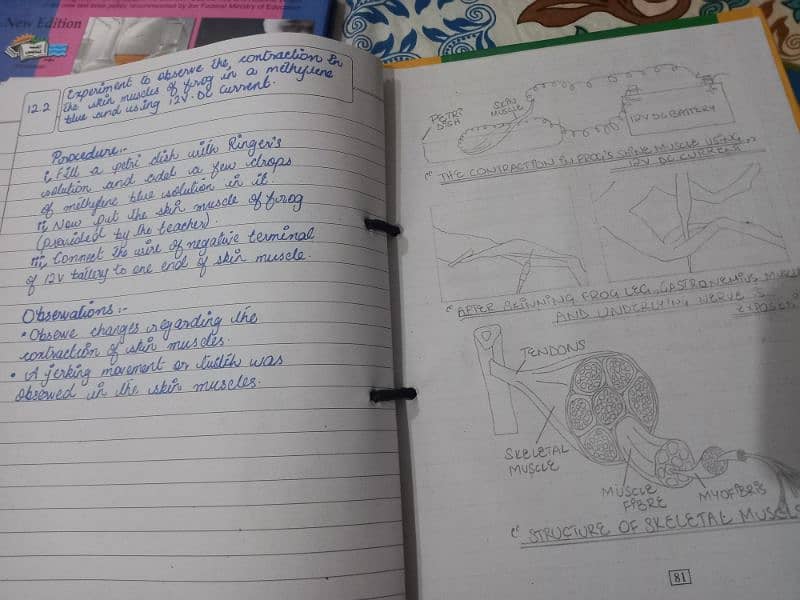 the new text book policy recommended by the Federal Ministry of Education
New Edition
12.2
Experiment to observe the contraction in
the skin muscles of frog in a methylene
blue and using 12V-DC current.
Procedure:-
i; Fill a petri dish with Ringer's
solution and add a few drops
of methylene blue solution in it.
ii; Now put the skin muscle of frog
(provided by the teacher).
iii; Connect the wire of negative terminal
of 12V battery to one end of skin muscle.
Observations:-
• Observe changes regarding the
contraction of skin muscles.
• A jerking movement or twitch was
observed in the skin muscles.
PETRI
DISH
SKIN
MUSCLE
12V DC BATTERY
THE CONTRACTION IN FROG'S SKIN MUSCLE USING
12V DC CURRENT
AFTER SKINNING FROG LEG, GASTRONEMIUS
AND UNDERLYIN, NERVE IS
EXPOSED
TENDONS
SKELETAL
MUSCLE
MUSCLE
FIBRE
MYOFIBRIS
STRUCTURE OF SKELETAL MUSCLE
81